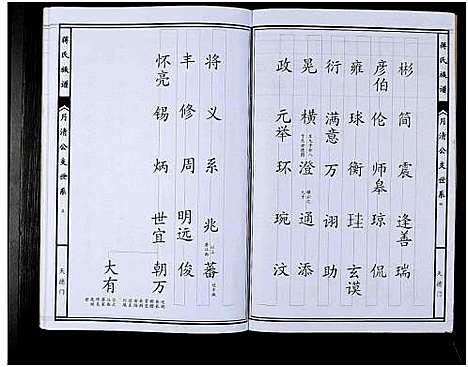 蒋氏族谱 《月清公支世系 天德门
彬 简 震 逢善 瑞
彦伯 伦 师皋 琼 侃
雍 球 衡 珪 玄谟
衍 满意 万 诩 助
晃 横 澄 通 添
政 元举 环 琬 汶
将 义 系 兆 蕃
丰 修 周 明远 俊
怀亮 锡 炳 世宜 朝万
大有
蒋氏族谱 《月清公支世系 天德门